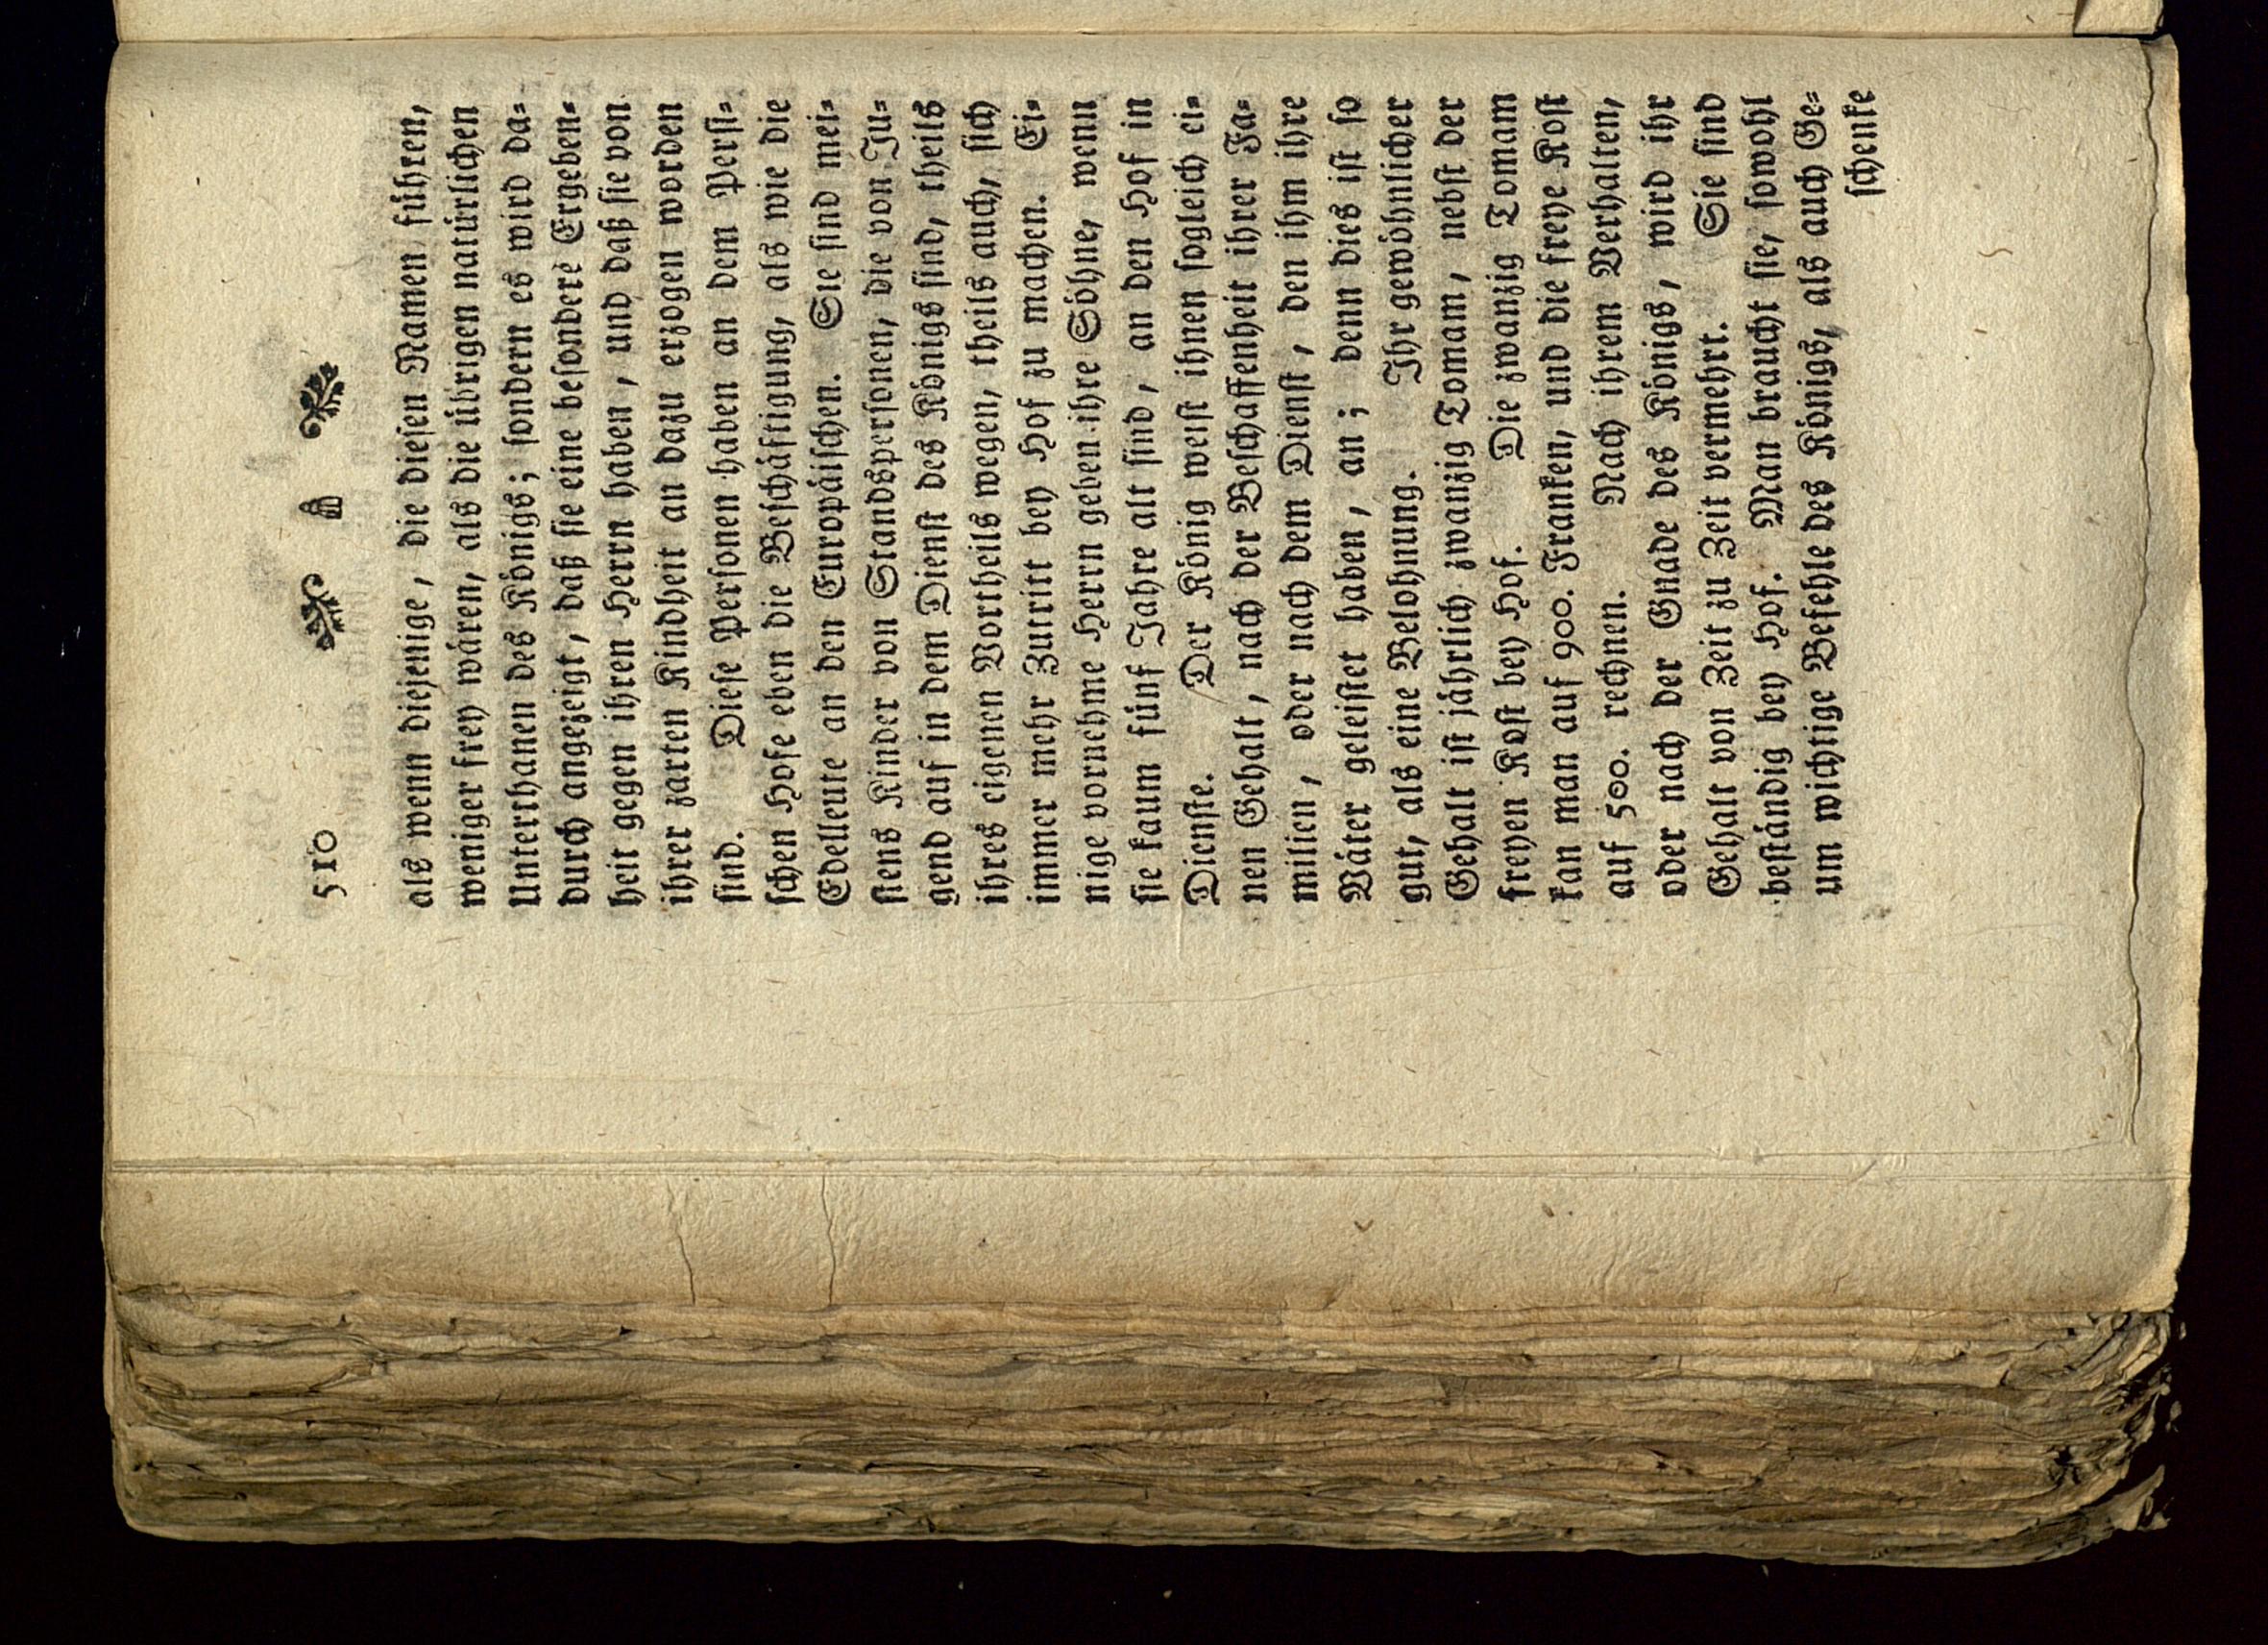 510
als wenn diejenige, die dieſen Namen führen,
weniger frey wären, als die übrigen natürlichen
Unterthanen des Königs; ſondern es wird da⸗
durch angezeigt, daß ſie eine beſondere Ergeben⸗
heit gegen ihren Herrn haben, und daß ſie von
ihrer zarten Kindheit an dazu erzogen worden
ſind. Dieſe Perſonen haben an dem Perſi⸗
ſchen Hofe eben die Beſchäftigung, als wie die
Edelleute an den Europäiſchen. Sie ſind mei⸗
ſtens Kinder von Standsperſonen, die von Ju⸗
gend auf in dem Dienſt des Königs ſind, theils
ihres eigenen Vortheils wegen, theils auch, ſich
immer mehr Zutritt bey Hof zu machen. Ei⸗
nige vornehme Herrn geben ihre Söhne, wenn
ſie kaum fünf Jahre alt ſind, an den Hof in
Dienſte. Der König weiſt ihnen ſogleich ei⸗
nen Gehalt, nach der Beſchaffenheit ihrer Fa⸗
milien, oder nach dem Dienſt, den ihm ihre
Väter geleiſtet haben, an; denn dies iſt ſo
gut, als eine Belohnung. Ihr gewöhnlicher
Gehalt iſt jährlich zwanzig Tomam, nebſt der
freyen Koſt bey Hof. Die zwanzig Tomam
kan man auf 900. Franken, und die freye Koſt
auf 500. rechnen. Nach ihrem Verhalten,
oder nach der Gnade des Königs, wird ihr
Gehalt von Zeit zu Zeit vermehrt. Sie ſind
beſtändig bey Hof. Man braucht ſie, ſowohl
um wichtige Befehle des Königs, als auch Ge⸗
ſchenke